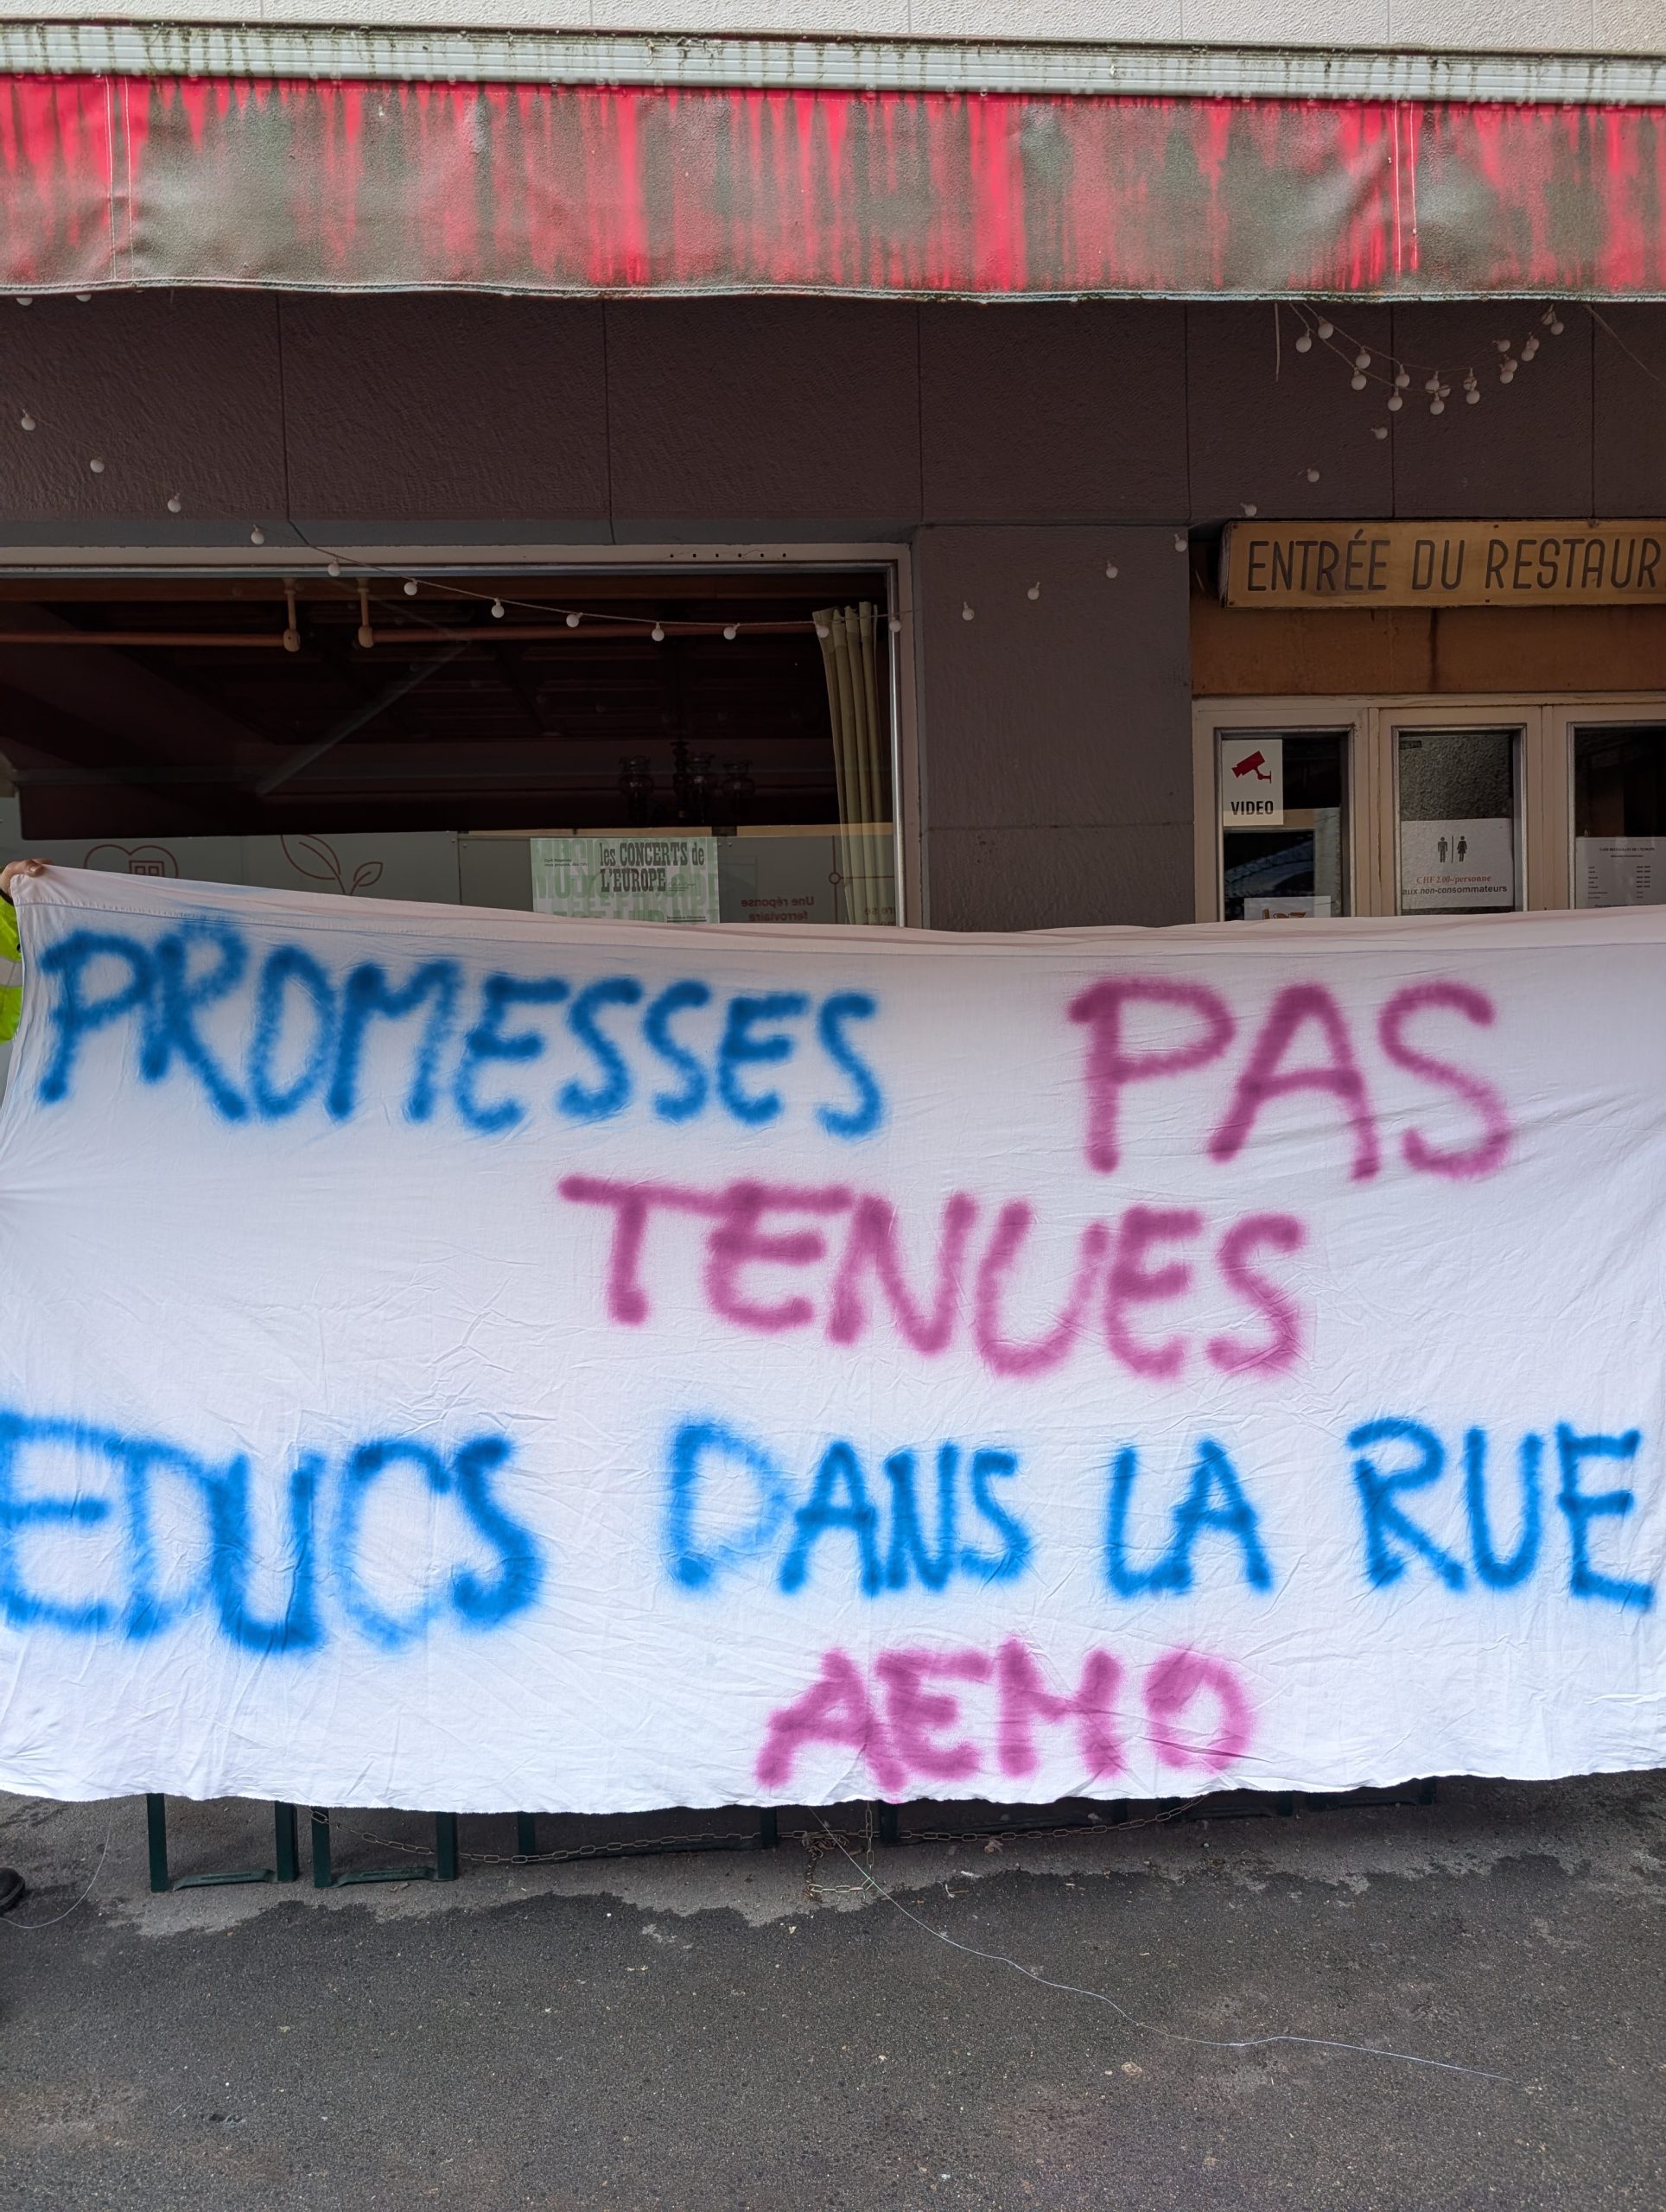 ENTRÉE DU RESTAUR
VIDEO
CHF 2.00-/personne
aux non-consommateurs
les CONCERTS de
L'EUROPE
Une réponse
ferroviaire
PROMESSES PAS
TENUES
EDUCS DANS LA RUE
AEMO